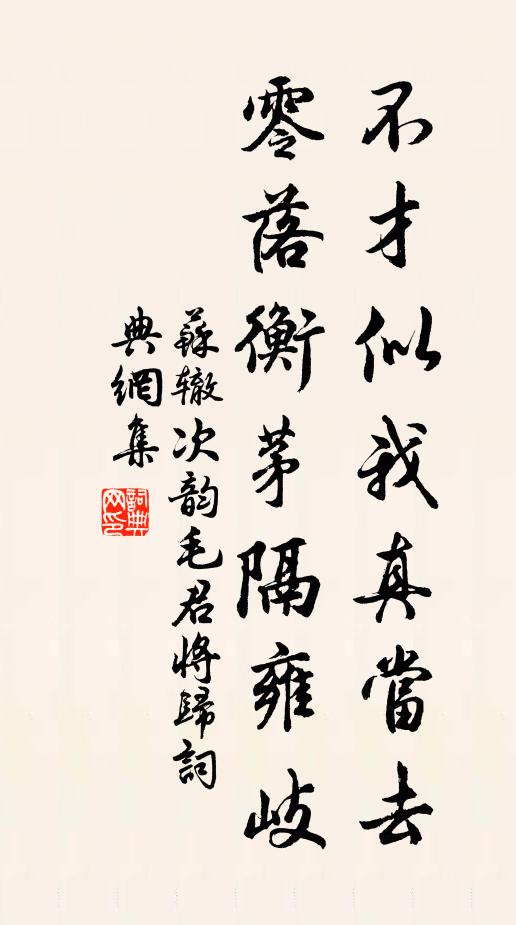 不才似我真當去
零落衡茅隔雍岐
蘇辙次韵毛君将歸詞
典網集
詞典網印